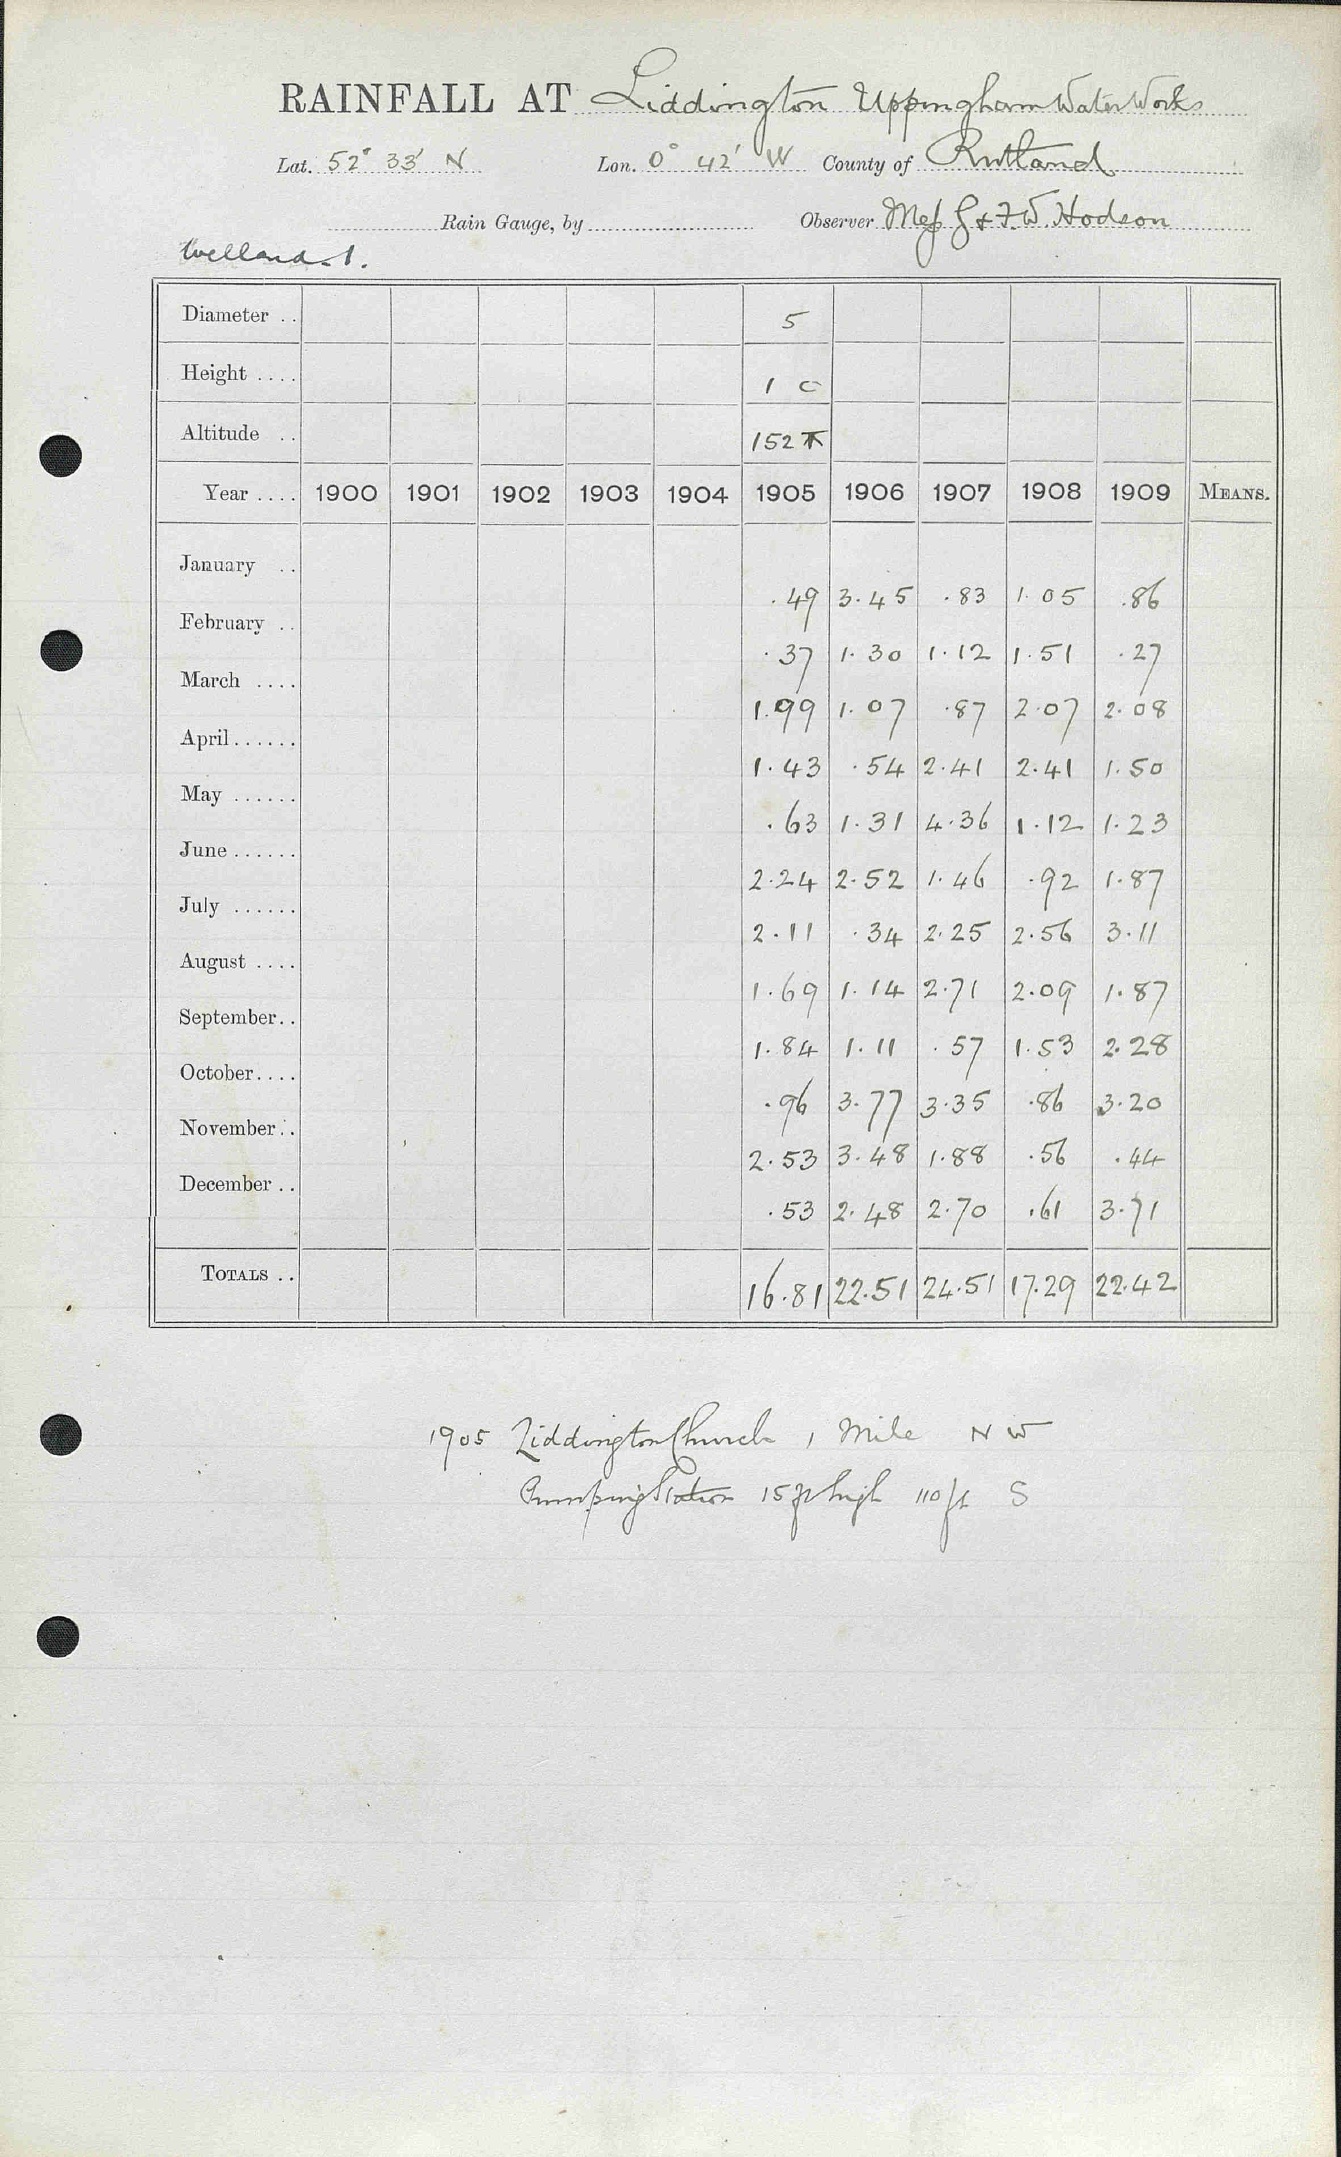 RAINFALL AT Liddington Uppingham Water Works
Lat. 52° 33' N Lon. 0° 42' W County of Rutland
Rain Gauge, by Observer Mess G & F.W. Hodson
Welland. 1.
Diameter .. 5
Height .... 1 0
Altitude .. 152
Year .... 1900 1901 1902 1903 1904 1905 1906 1907 1908 1909 MEANS.
January .. .49 3.45 .83 1.05 .86
February .. .37 1.30 1.12 1.51 .27
March .... 1.99 1.07 .87 2.07 2.08
April...... 1.43 .54 2.41 2.41 1.50
May ...... .63 1.31 4.36 1.12 1.23
June...... 2.24 2.52 1.46 .92 1.87
July ...... 2.11 .34 2.25 2.56 3.11
August .... 1.69 1.14 2.71 2.09 1.87
September.. 1.84 1.11 .57 1.53 2.28
October.... .96 3.77 3.35 .86 3.20
November.. 2.53 3.48 1.88 .56 .44
December .. .53 2.48 2.70 .61 3.71
TOTALS .. 16.81 22.51 24.51 17.29 22.42
1905 Liddington Church 1 Mile N W
Pumping Station 15 ft high 110 ft S